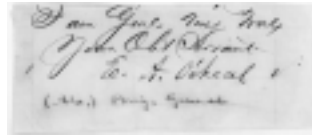 I am Genl. Very Truly
Your Obt Servant
E. A. O'Neal
Brig. General